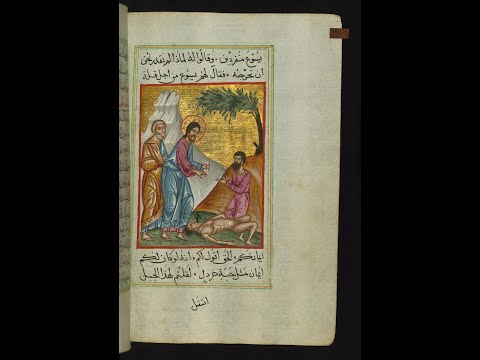 يسوع منفردين • وقالوا له لماذا لم نقدر نحن
ان نخرجه • فقال لهم يسوع من اجل قلة
ايمانكم • الحق اقول لكم • انه لو كان لكم
ايمان مثل حبة خردل • لقلتم لهذا الجبل
انتقل